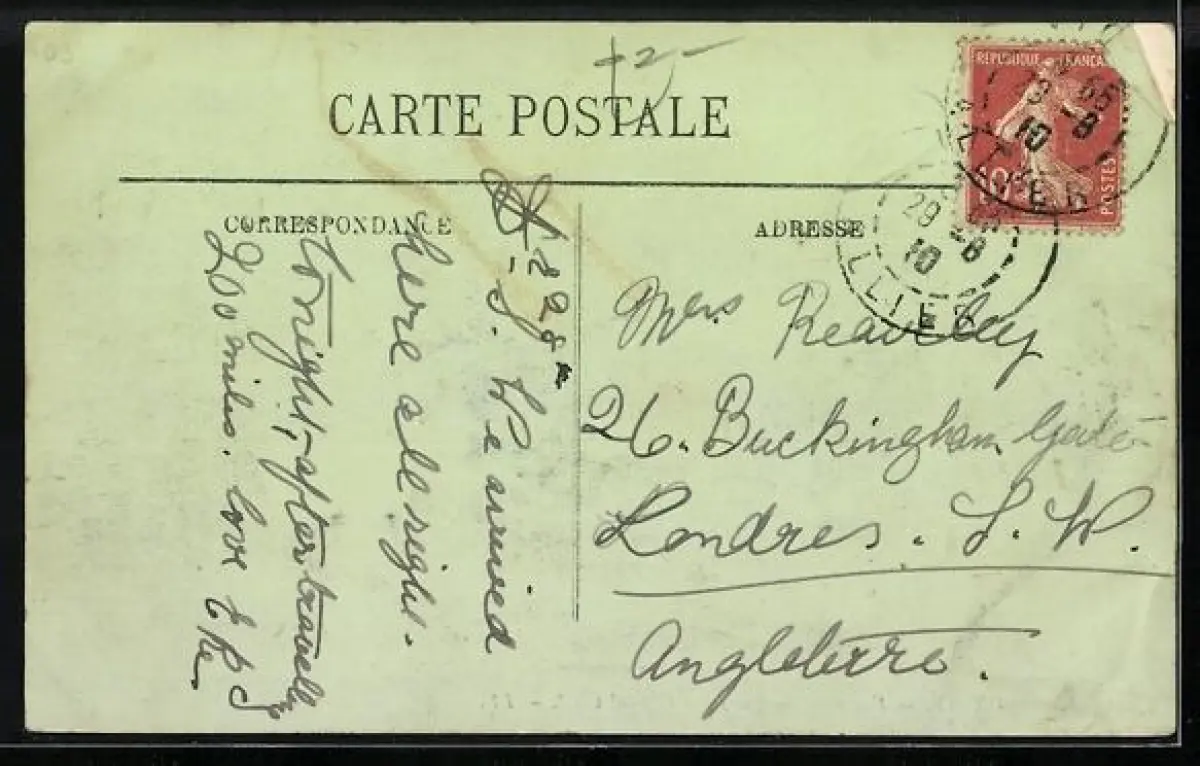 -2-
CARTE POSTALE
REPUBLIQUE FRANCAISE
10
POSTES
CORRESPONDANCE
ADRESSE
28
We arrived
here all right.
tonight, - after travelling
200 miles. love
29 -8
10
Mrs
26. Buckingham Gate
Londres. S. W.
Angleterre.